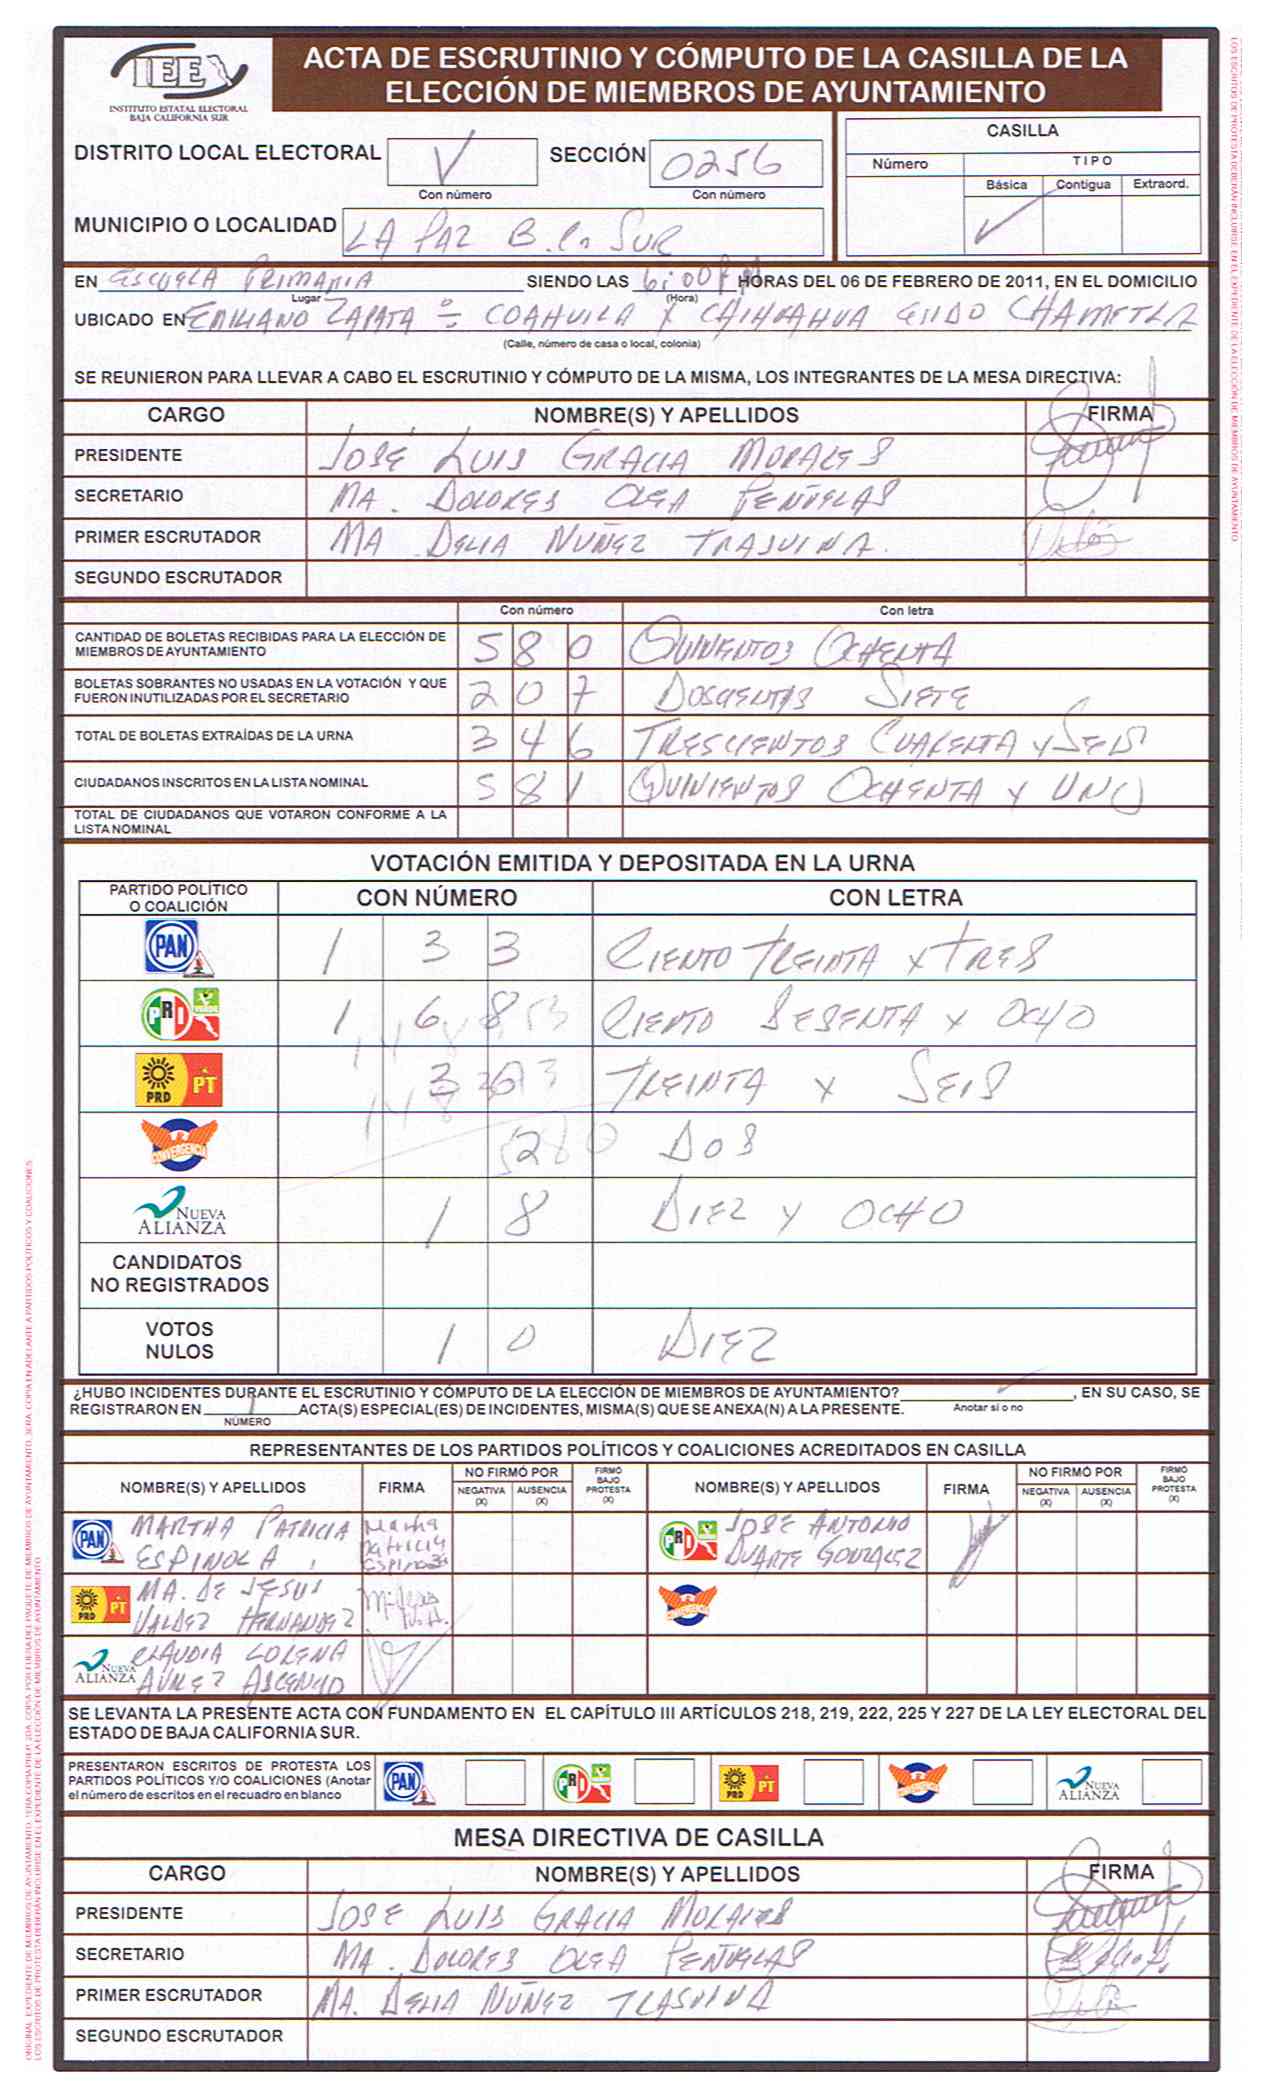 IEE
INSTITUTO ESTATAL ELECTORAL
BAJA CALIFORNIA SUR
ACTA DE ESCRUTINIO Y CÓMPUTO DE LA CASILLA DE LA
ELECCIÓN DE MIEMBROS DE AYUNTAMIENTO
DISTRITO LOCAL ELECTORAL V SECCIÓN 0256
Con número Con número
MUNICIPIO O LOCALIDAD LA PAZ B. Ca SUR
CASILLA
Número TIPO
Básica Contigua Extraord.
✓
EN ESCUELA PRIMARIA SIENDO LAS 6:00 PM HORAS DEL 06 DE FEBRERO DE 2011, EN EL DOMICILIO
Lugar (Hora)
UBICADO EN EMILIANO ZAPATA ÷ COAHUILA Y CHIHUAHUA EJIDO CHAMETLA
(Calle, número de casa o local, colonia)
SE REUNIERON PARA LLEVAR A CABO EL ESCRUTINIO Y CÓMPUTO DE LA MISMA, LOS INTEGRANTES DE LA MESA DIRECTIVA:
CARGO NOMBRE(S) Y APELLIDOS FIRMA
PRESIDENTE JOSÉ LUIS GRACIA MORALES
SECRETARIO MA. DOLORES OLEA PEÑUELAS
PRIMER ESCRUTADOR MA DELIA NUÑEZ TRASVINA.
SEGUNDO ESCRUTADOR
Con número Con letra
CANTIDAD DE BOLETAS RECIBIDAS PARA LA ELECCIÓN DE
MIEMBROS DE AYUNTAMIENTO 580 QUINIENTOS OCHENTA
BOLETAS SOBRANTES NO USADAS EN LA VOTACIÓN Y QUE
FUERON INUTILIZADAS POR EL SECRETARIO 207 DOSCIENTAS SIETE
TOTAL DE BOLETAS EXTRAÍDAS DE LA URNA 346 TRESCIENTOS CUARENTA Y SEIS
CIUDADANOS INSCRITOS EN LA LISTA NOMINAL 581 QUINIENTOS OCHENTA Y UNO
TOTAL DE CIUDADANOS QUE VOTARON CONFORME A LA
LISTA NOMINAL
VOTACIÓN EMITIDA Y DEPOSITADA EN LA URNA
PARTIDO POLÍTICO
O COALICIÓN CON NÚMERO CON LETRA
PAN 1 3 3 CIENTO TREINTA Y TRES
PRI VERDE 1 6 8 CIENTO SESENTA Y OCHO
PRD PT 3 6 TREINTA Y SEIS
CONVERGENCIA 2 DOS
NUEVA ALIANZA 1 8 DIEZ Y OCHO
CANDIDATOS
NO REGISTRADOS
VOTOS
NULOS 1 0 DIEZ
¿HUBO INCIDENTES DURANTE EL ESCRUTINIO Y CÓMPUTO DE LA ELECCIÓN DE MIEMBROS DE AYUNTAMIENTO? ✓, EN SU CASO, SE
REGISTRARON EN 1 ACTA(S) ESPECIAL(ES) DE INCIDENTES, MISMA(S) QUE SE ANEXA(N) A LA PRESENTE. Anotar sí o no
NÚMERO
REPRESENTANTES DE LOS PARTIDOS POLÍTICOS Y COALICIONES ACREDITADOS EN CASILLA
NOMBRE(S) Y APELLIDOS FIRMA NO FIRMÓ POR NEGATIVA (X) AUSENCIA (X) FIRMÓ BAJO PROTESTA (X) NOMBRE(S) Y APELLIDOS FIRMA NO FIRMÓ POR NEGATIVA (X) AUSENCIA (X) FIRMÓ BAJO PROTESTA (X)
PAN MARTHA PATRICIA ESPINOLA Martha Patricia Espinoza PRI JOSE ANTONIO DUARTE GONZALEZ
PRD PT MA. DE JESUS VALDEZ HERNANDEZ CONVERGENCIA
NUEVA ALIANZA CLAUDIA LORENA
SE LEVANTA LA PRESENTE ACTA CON FUNDAMENTO EN EL CAPÍTULO III ARTÍCULOS 218, 219, 222, 225 Y 227 DE LA LEY ELECTORAL DEL
ESTADO DE BAJA CALIFORNIA SUR.
PRESENTARON ESCRITOS DE PROTESTA LOS
PARTIDOS POLÍTICOS Y/O COALICIONES (Anotar
el número de escritos en el recuadro en blanco
PAN PRI PRD PT CONVERGENCIA NUEVA ALIANZA
MESA DIRECTIVA DE CASILLA
CARGO NOMBRE(S) Y APELLIDOS FIRMA
PRESIDENTE JOSE LUIS GRACIA MORALES
SECRETARIO MA. DOLORES OLEA PEÑUELAS
PRIMER ESCRUTADOR MA. DELIA NÚÑEZ TRASVINA
SEGUNDO ESCRUTADOR
LOS ESCRITOS DE PROTESTA DEBERÁN INCLUIRSE EN EL EXPEDIENTE DE LA ELECCIÓN DE MIEMBROS DE AYUNTAMIENTO